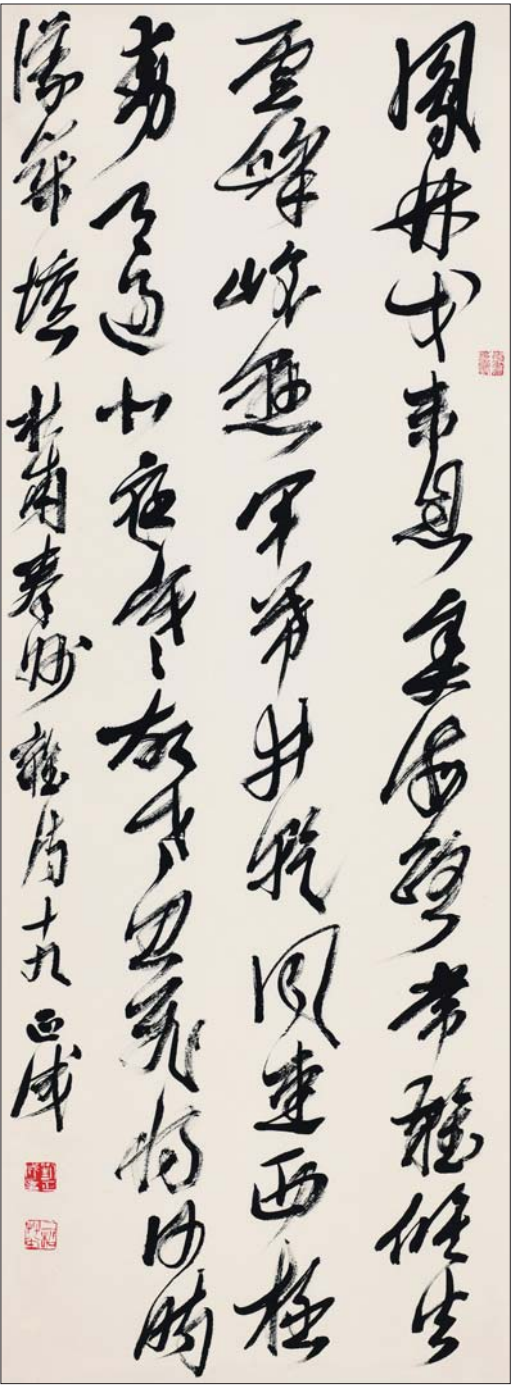 鳳林戈未息魚海路常難候火
雲峰峻懸軍幕井乾風連西極
動月過北庭寒故老思飛將何時
議築壇 杜甫秦州雜詩十九 正成